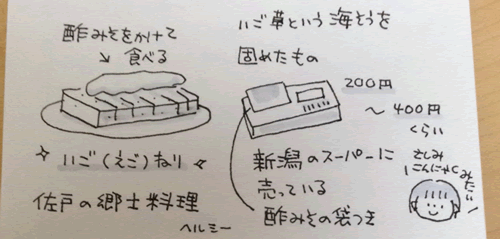 酢みそをかけて
食べる
いご(えご)ねり
佐戸の郷土料理
ヘルシー
いご草という海そうを
固めたもの
200円
～400円
くらい
新潟のスーパーに
売っている
酢みその袋つき
さしみ
こんにゃく
みたい!